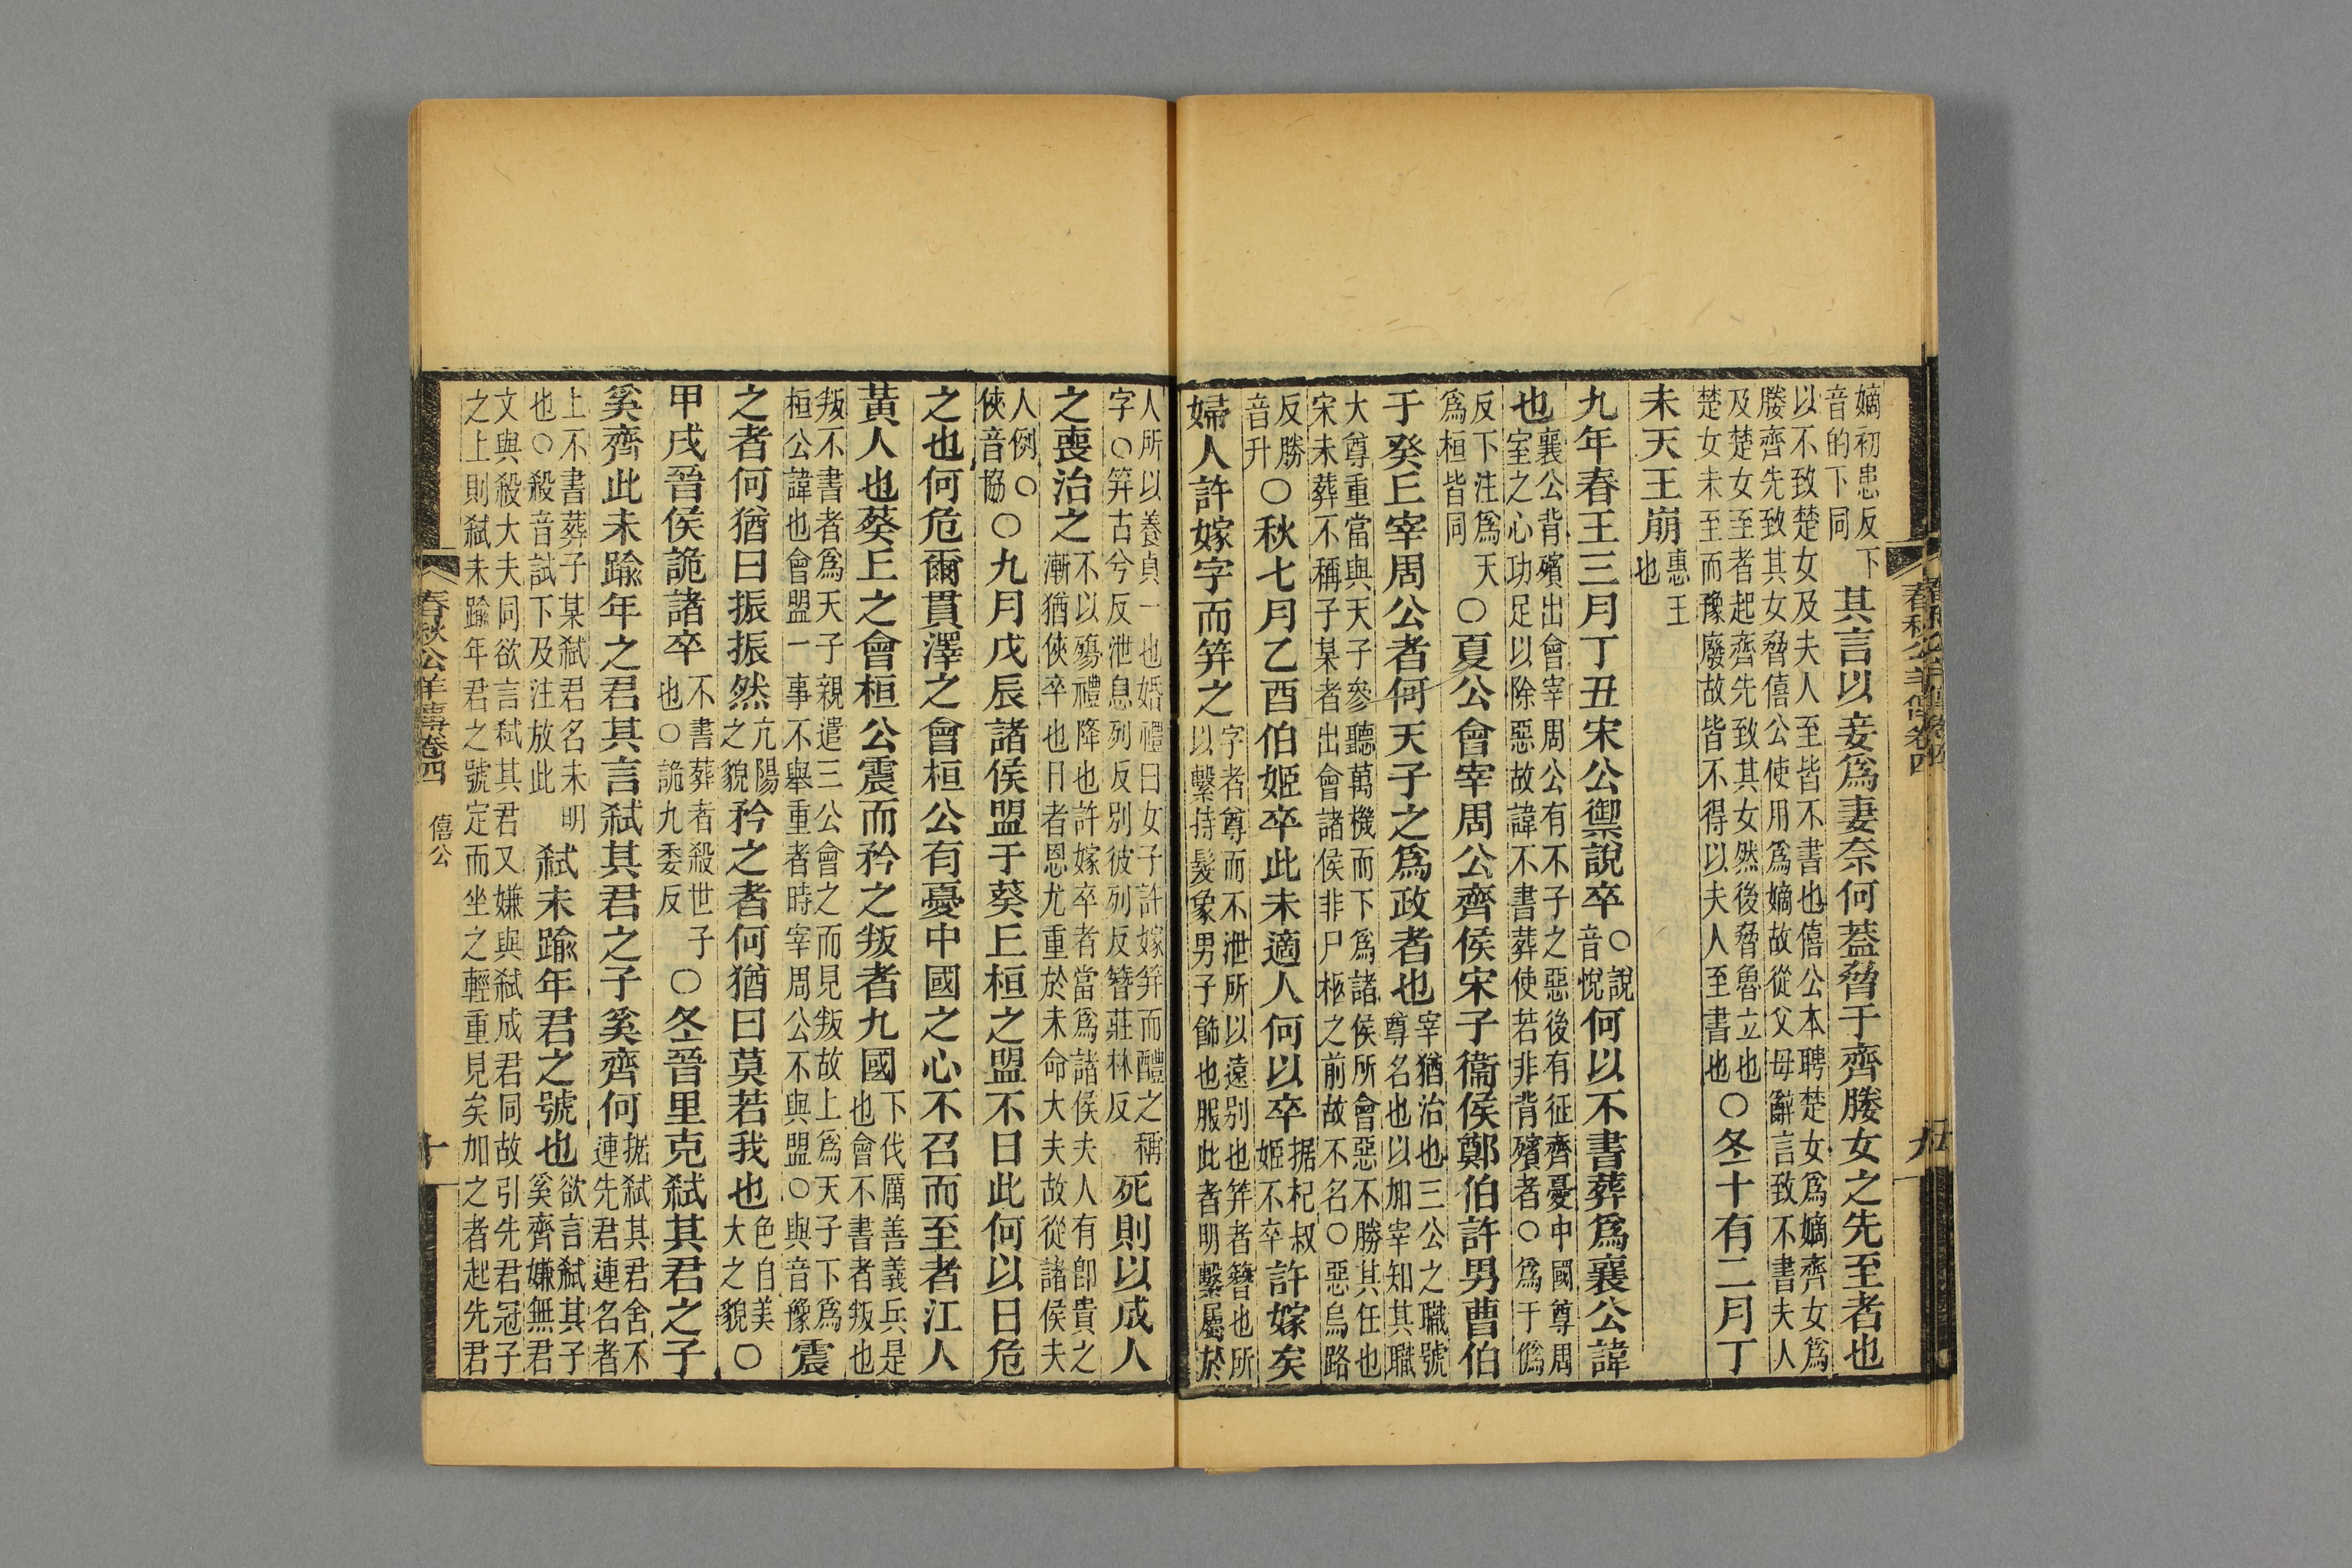 嫡初患反下
音的下同
其言以妾爲妻奈何葢脅于齊媵女之先至者也
以不致楚女及夫人至皆不書也僖公本聘楚女爲嫡齊女爲
媵齊先致其女脅僖公使用爲嫡故從父母辭言致不書夫人
及楚女至者起齊先致其女然後脅魯立也
楚女未至而豫廢故皆不得以夫人至書也
○冬十有二月丁
未天王崩
惠王
也
九年春王三月丁丑宋公禦說卒
○說
音悅
何以不書葬爲襄公諱
也
襄公背殯出會宰周公有不子之惡後有征齊憂中國尊周
室之心功足以除惡故諱不書葬使若非背殯者○爲于僞
反下注爲天
爲桓皆同
○夏公會宰周公齊侯宋子衞侯鄭伯許男曹伯
于癸丘宰周公者何天子之爲政者也
宰猶治也三公之職號
尊名也以加宰知其職
大尊重當與天子參聽萬機而下爲諸侯所會惡不勝其任也
宋未葬不稱子某者出會諸侯非尸柩之前故不名○惡烏路
反勝
音升
○秋七月乙酉伯姬卒此未適人何以卒
据杞叔
姬不卒
許嫁矣
婦人許嫁字而笄之
字者尊而不泄所以遠别也笄者簪也所
以繫持髮象男子飾也服此者明繫屬於
人所以養貞一也婚禮曰女子許嫁笄而醴之稱
字○笄古兮反泄息列反別彼列反簪莊林反
死則以成人
之喪治之
不以殤禮降也許嫁卒者當爲諸侯夫人有卽貴之
漸猶俠卒也日者恩尤重於未命大夫故從諸侯夫
人例○
俠音協
○九月戊辰諸侯盟于葵丘桓之盟不日此何以日危
之也何危爾貫澤之會桓公有憂中國之心不召而至者江人
黃人也葵丘之會桓公震而矜之叛者九國
下伐厲善義兵是
也會不書者叛也
叛不書者爲天子親遣三公會之而見叛故上爲天子下爲
桓公諱也會盟一事不舉重者時宰周公不與盟○與音豫
震
之者何猶曰振振然
亢陽
之貌
矜之者何猶曰莫若我也
色自美
大之貌
○
甲戌晉侯詭諸卒
不書葬者殺世子
也○詭九委反
○冬晉里克弒其君之子
奚齊此未踰年之君其言弒其君之子奚齊何
据弒其君舍不
連先君連名者
上不書葬子某弒君名未明
也○殺音試下及注放此
弒未踰年君之號也
欲言弒其子
奚齊嫌無君
文與殺大夫同欲言弒其君又嫌與弒成君同故引先君冠子
之上則弒未踰年君之號定而坐之輕重見矣加之者起先君
春秋公羊傳卷四
僖公
十
春秋公羊傳卷四
九